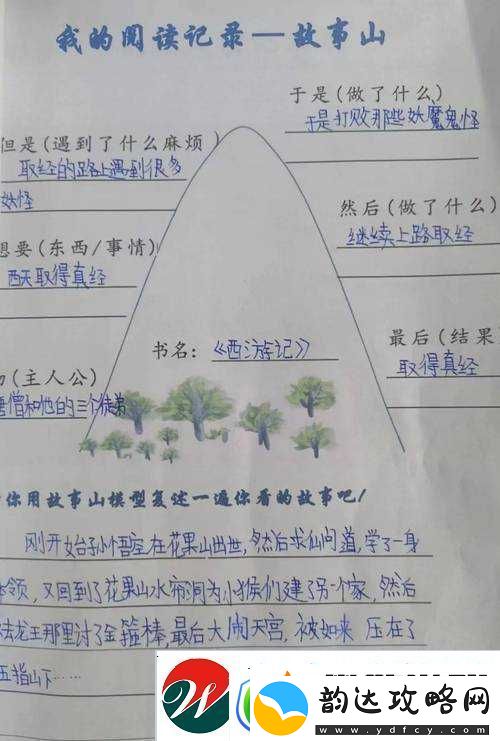 我的阅读记录—故事山
于是(做了什么)
于是打败那些妖魔鬼怪
但是(遇到了什么麻烦)
取经的路上遇到很多
妖怪
然后(做了什么)
继续上路取经
想要(东西/事情)
西天取得真经
最后(结果
取得真经
书名:《西游记》
(主人公)
唐僧和他的三个徒弟
你用故事山模型复述一遍你看的故事吧!
刚开始孙悟空在花果山出世,然后求仙问道,学了一身
本领,又回到了花果山水帘洞为小猴们建了另一个家,然后
去龙王那里讨了金箍棒,最后大闹天宫,被如来 压在了
五指山下……
韵达攻略网
www.ydfcy.com